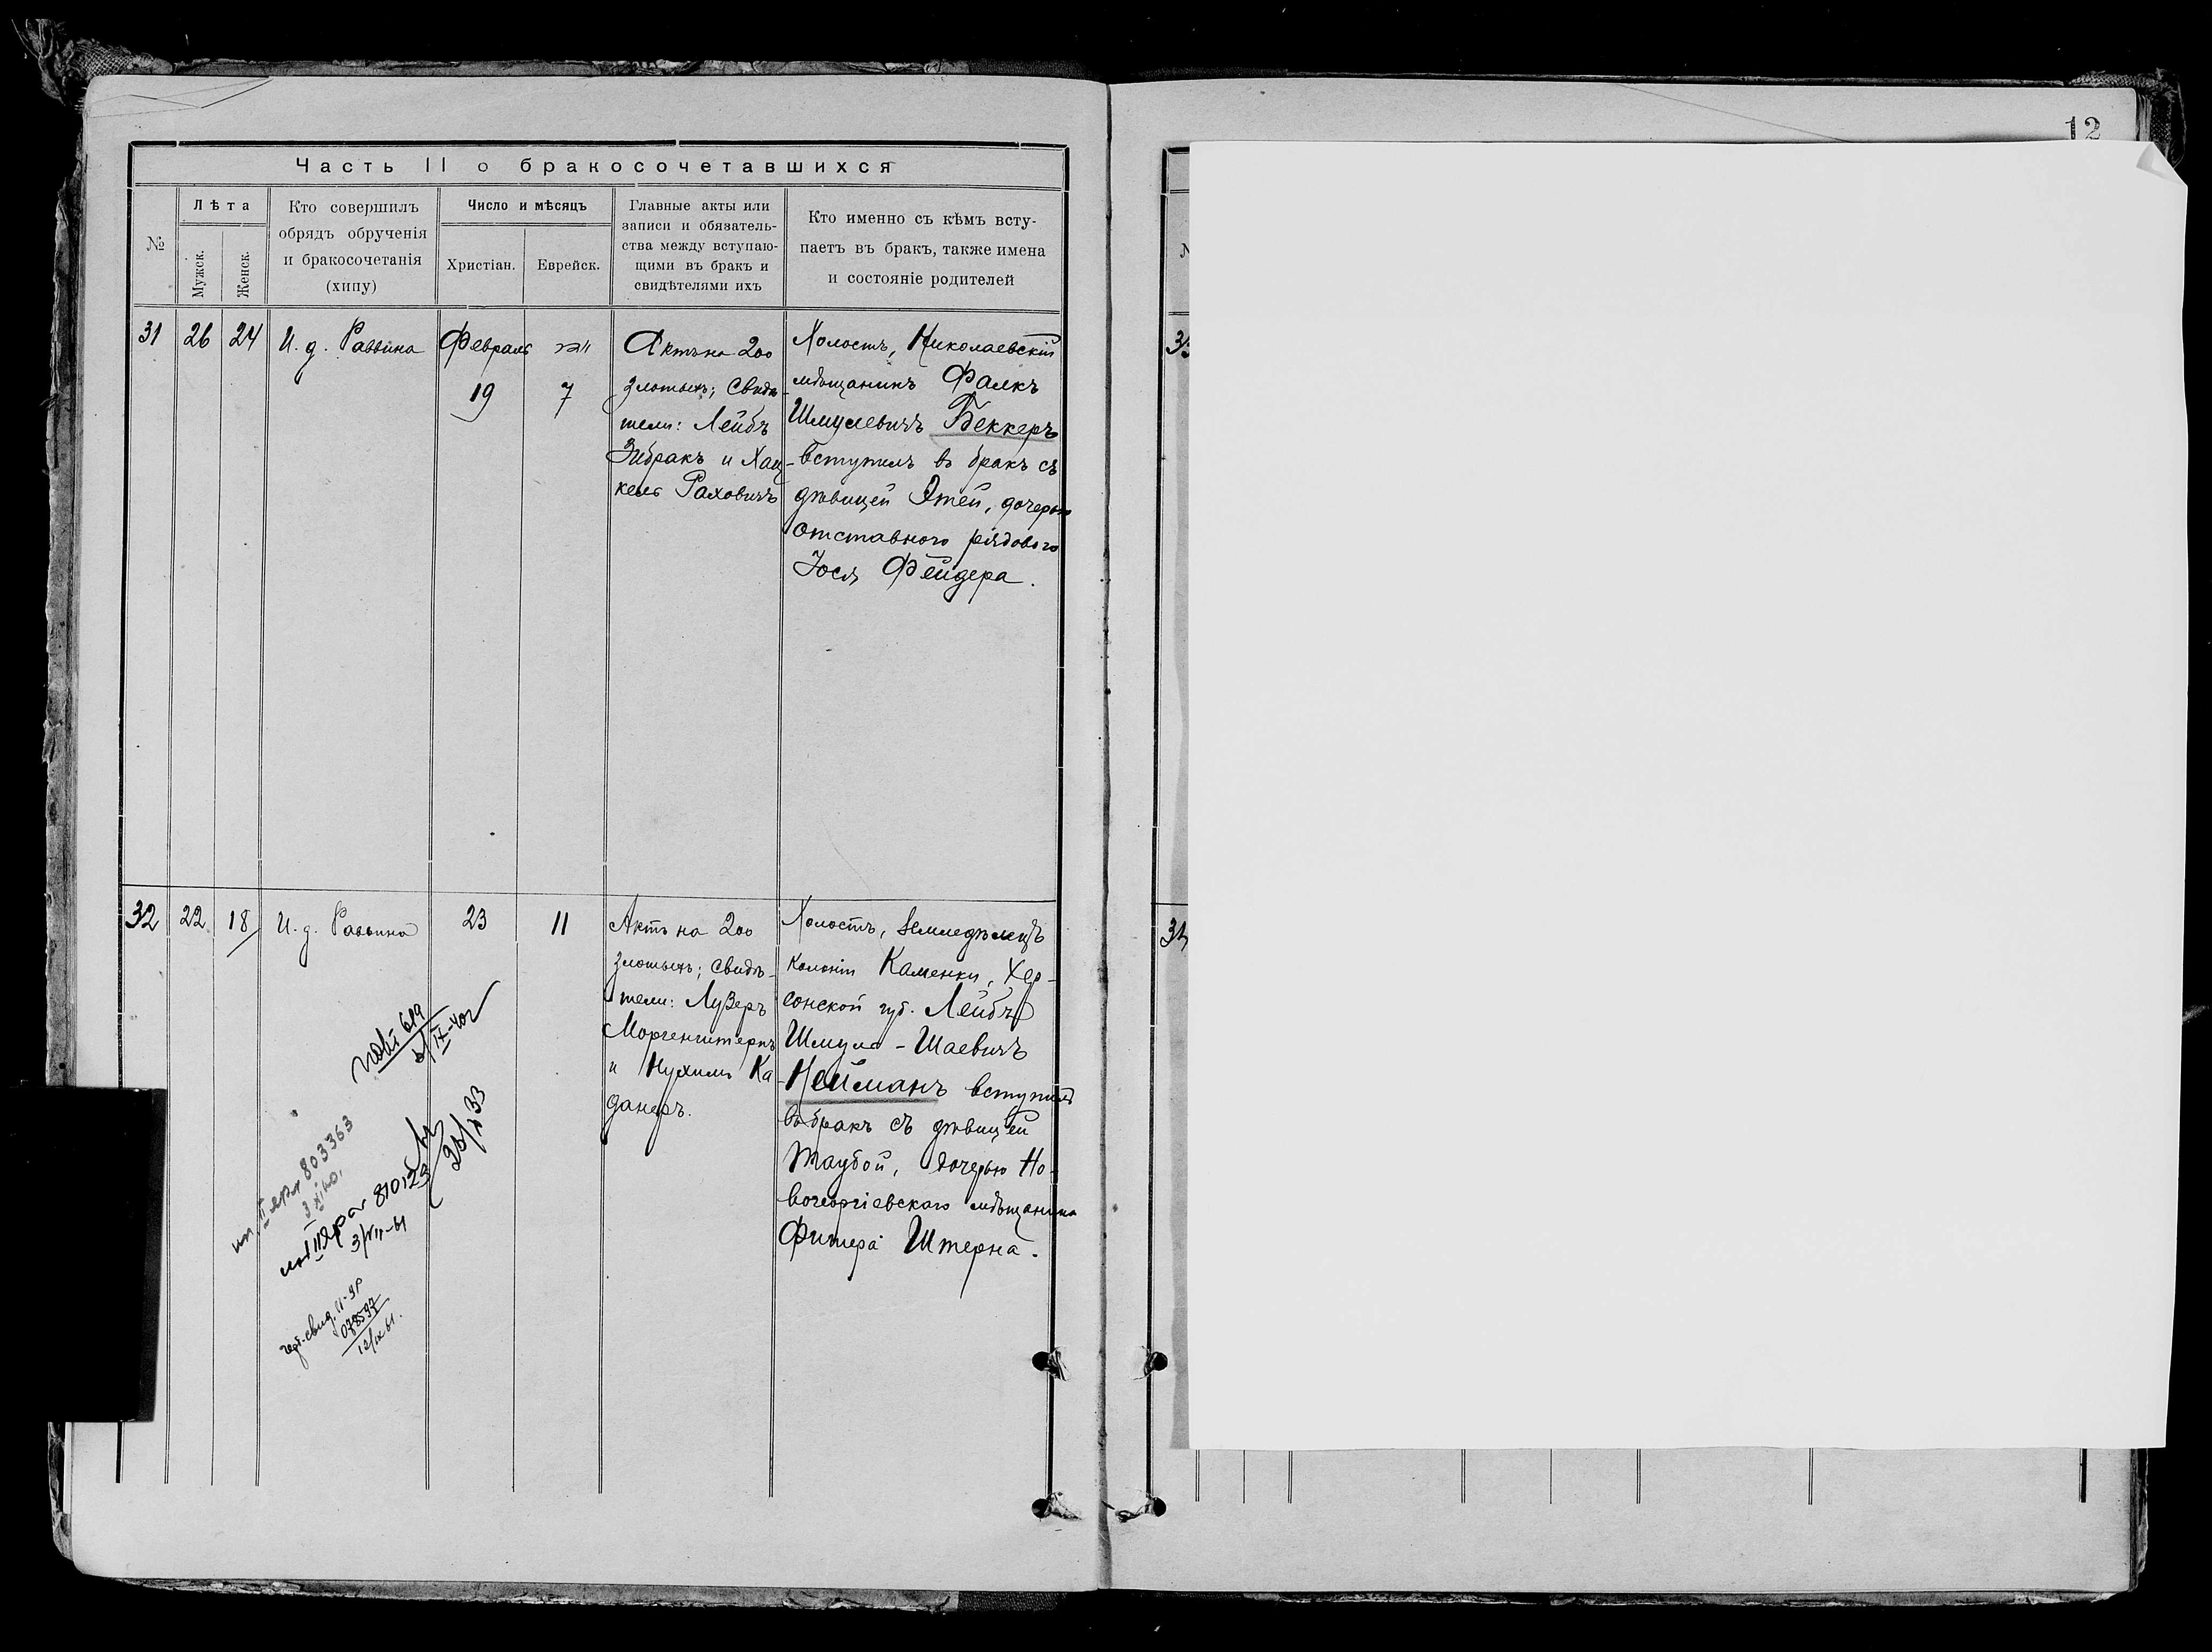 12
Часть II о бракосочетавшихся
№
Лѣта
Мужск.
Женск.
Кто совершилъ
обрядъ обрученія
и бракосочетанія
(хипу)
Число и мѣсяцъ
Христіан.
Еврейск.
Главные акты или
записи и обязатель-
ства между вступаю-
щими въ бракъ и
свидѣтелями ихъ
Кто именно съ кѣмъ всту-
паетъ въ бракъ, также имена
и состояніе родителей
31
26
24
И. д. Раввина
Февраль
19
7
Актъ на 200
злотыхъ; Свидѣ-
тели: Лейбъ
Зибракъ и Хац-
кель Раховичъ
Холостъ, Николаевскій
мѣщанинъ Фалкъ
Шмулевичъ Беккеръ
вступилъ въ бракъ съ
дѣвицей Этей, дочерью
отставного рядового
Іося Фейдера.
32
22
18
И. д. Раввина
23
11
Актъ на 200
злотыхъ; свидѣ-
тели: Лузеръ
Моргенштернъ
и Нухимъ Ка-
данеръ.
Холостъ, земледѣлецъ
колоніи Каменки, Хер-
сонской губ. Лейбъ
Шмуль-Шаевичъ
Нейманъ вступилъ
въ бракъ съ дѣвицей
Таубой, дочерью Но-
вогеоргіевскаго мѣщанина
Фишера Штерна.
803363
810123
3/VII-61
23/X 33
078597
12/IX 61.
34